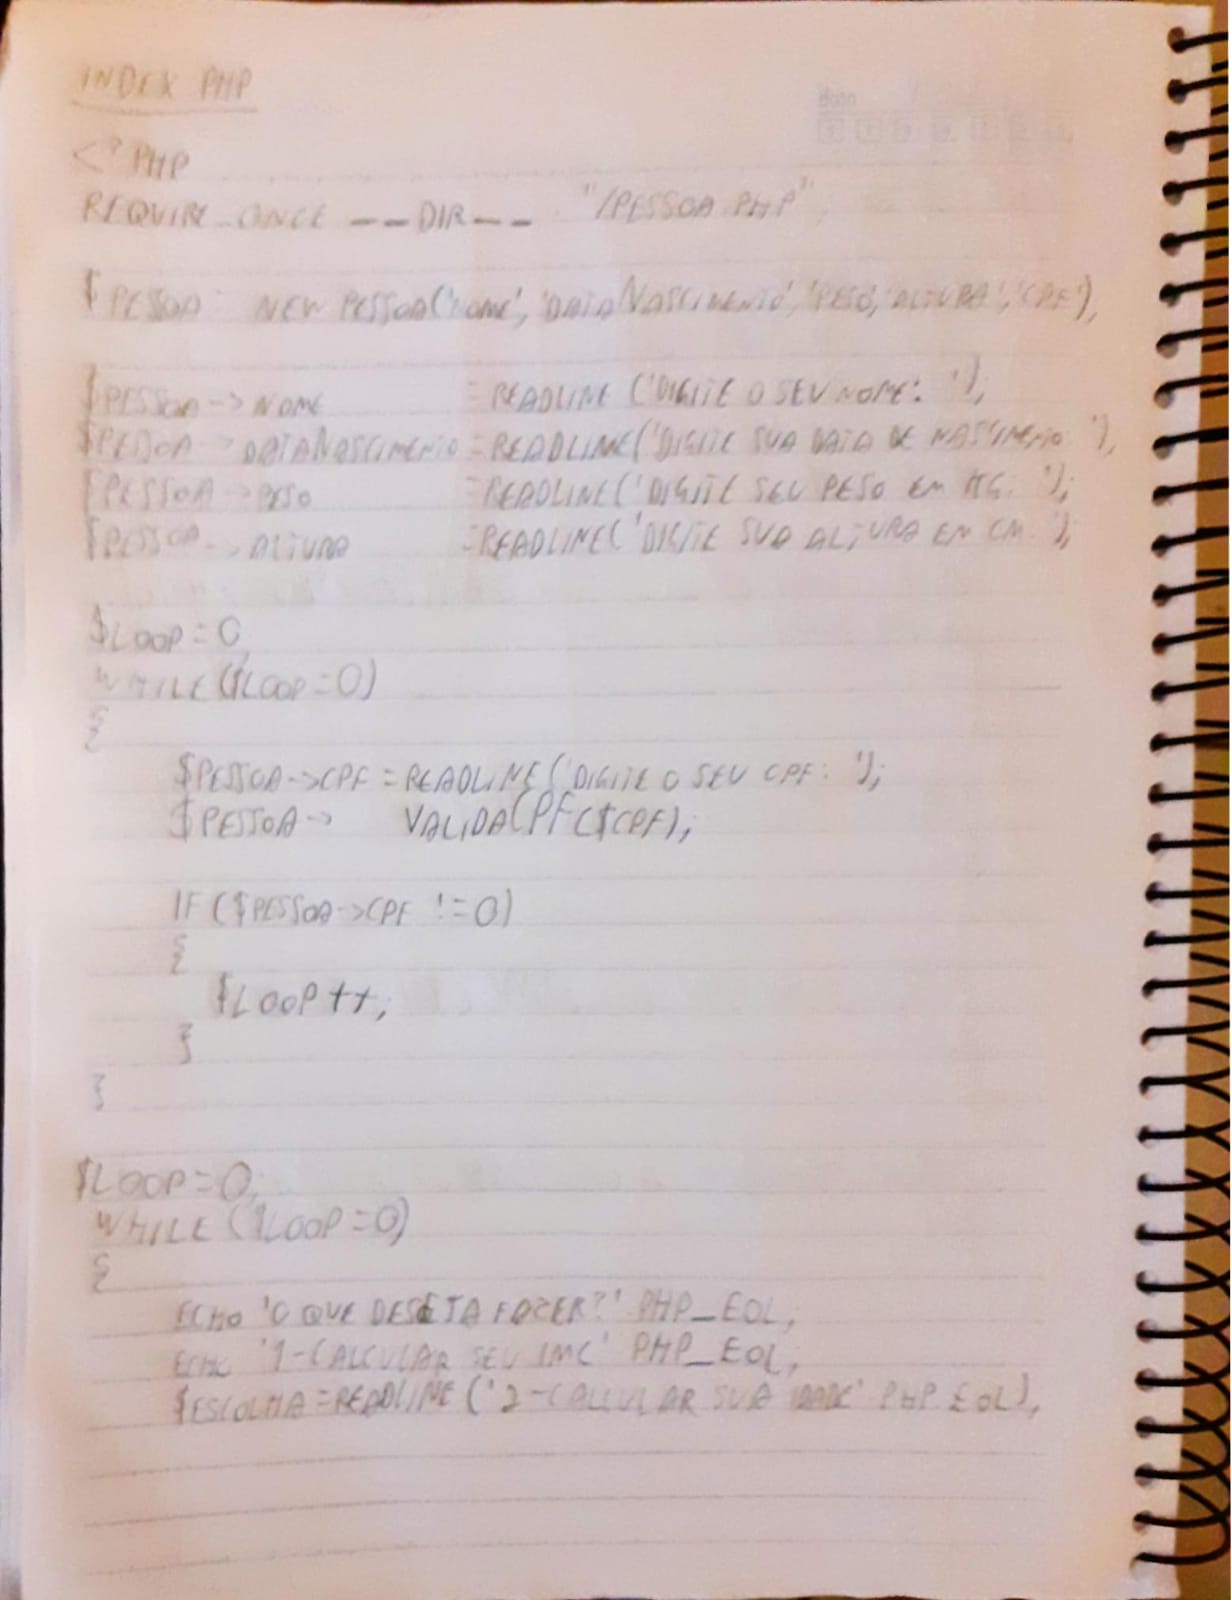 INDEX PHP
Data
<?PHP
REQUIRE_ONCE __DIR__ "/PESSOA PHP"
$PESSOA = NEW PESSOA('NOME', 'DATANASCIMENTO', 'PESO', 'ALTURA', 'CPF');
$PESSOA->NOME = READLINE ('DIGITE O SEU NOME: ');
$PESSOA->DATANASCIMENTO = READLINE('DIGITE SUA DATA DE NASCIMENTO: ');
$PESSOA->PESO = READLINE('DIGITE SEU PESO EM KG: ');
$PESSOA->ALTURA = READLINE('DIGITE SUA ALTURA EM CM: ');
$LOOP=0;
WHILE($LOOP=0)
{
$PESSOA->CPF = READLINE('DIGITE O SEU CPF: ');
$PESSOA-> VALIDACPF($CPF);
IF($PESSOA->CPF !=0)
{
$LOOP++;
}
}
$LOOP=0;
WHILE($LOOP=0)
{
ECHO 'O QUE DESEJA FAZER?' PHP_EOL;
ECHO '1-CALCULAR SEU IMC' PHP_EOL;
$ESCOLHA=READLINE('2-CALCULAR SUA IDADE' PHP_EOL);